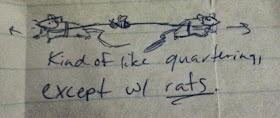 Kind of like quartering,
except w/ rats.